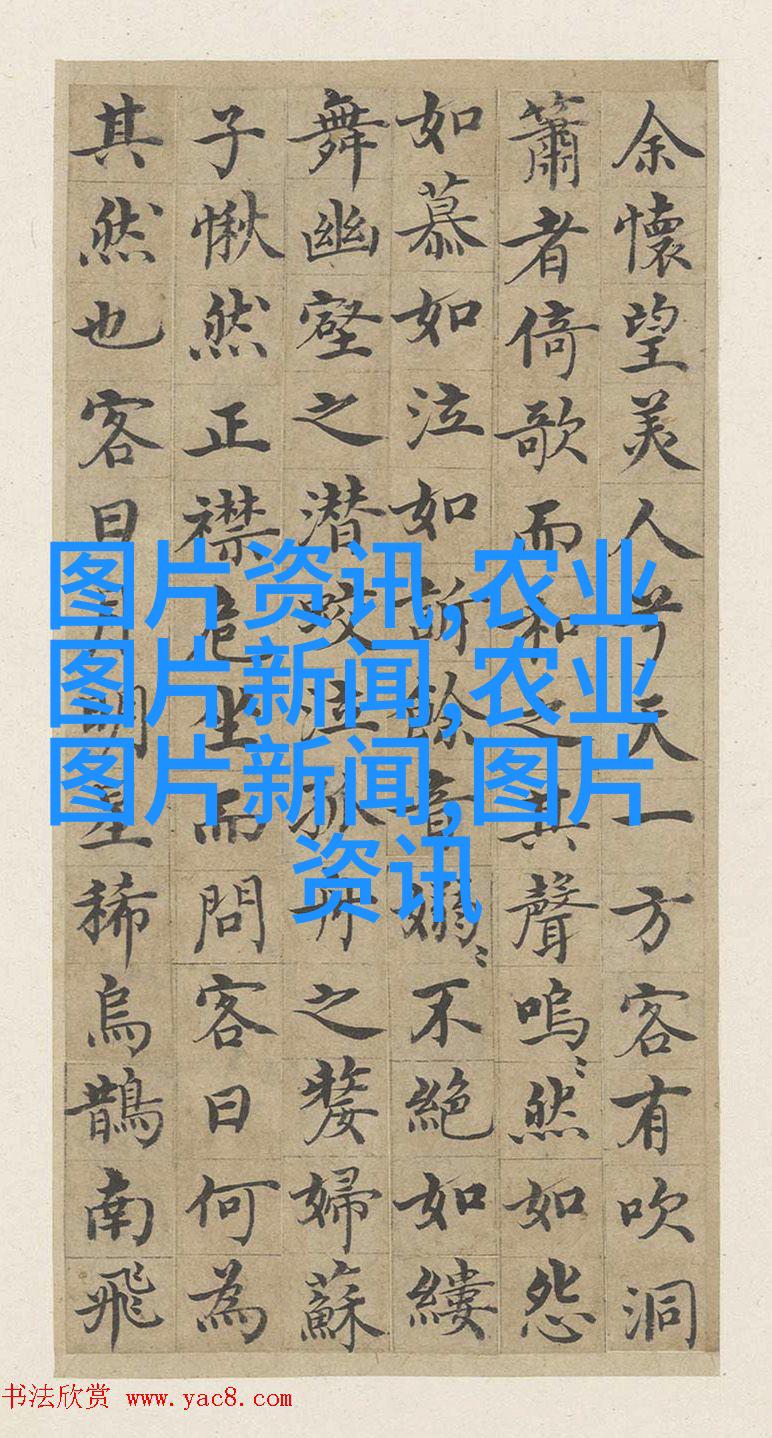 余懷望美人兮天一方客有吹洞
簫者倚歌而和之其聲嗚〻然如怨
如慕如泣如訴餘音嫋〻不絕如縷
舞幽壑之潜蛟泣孤舟之嫠婦蘇
子愀然正襟危坐而問客曰何為
其然也客曰月明星稀烏鵲南飛
图片资讯,农业
图片新闻,农业
图片新闻,图片
资讯
书法欣赏 www.yac8.com